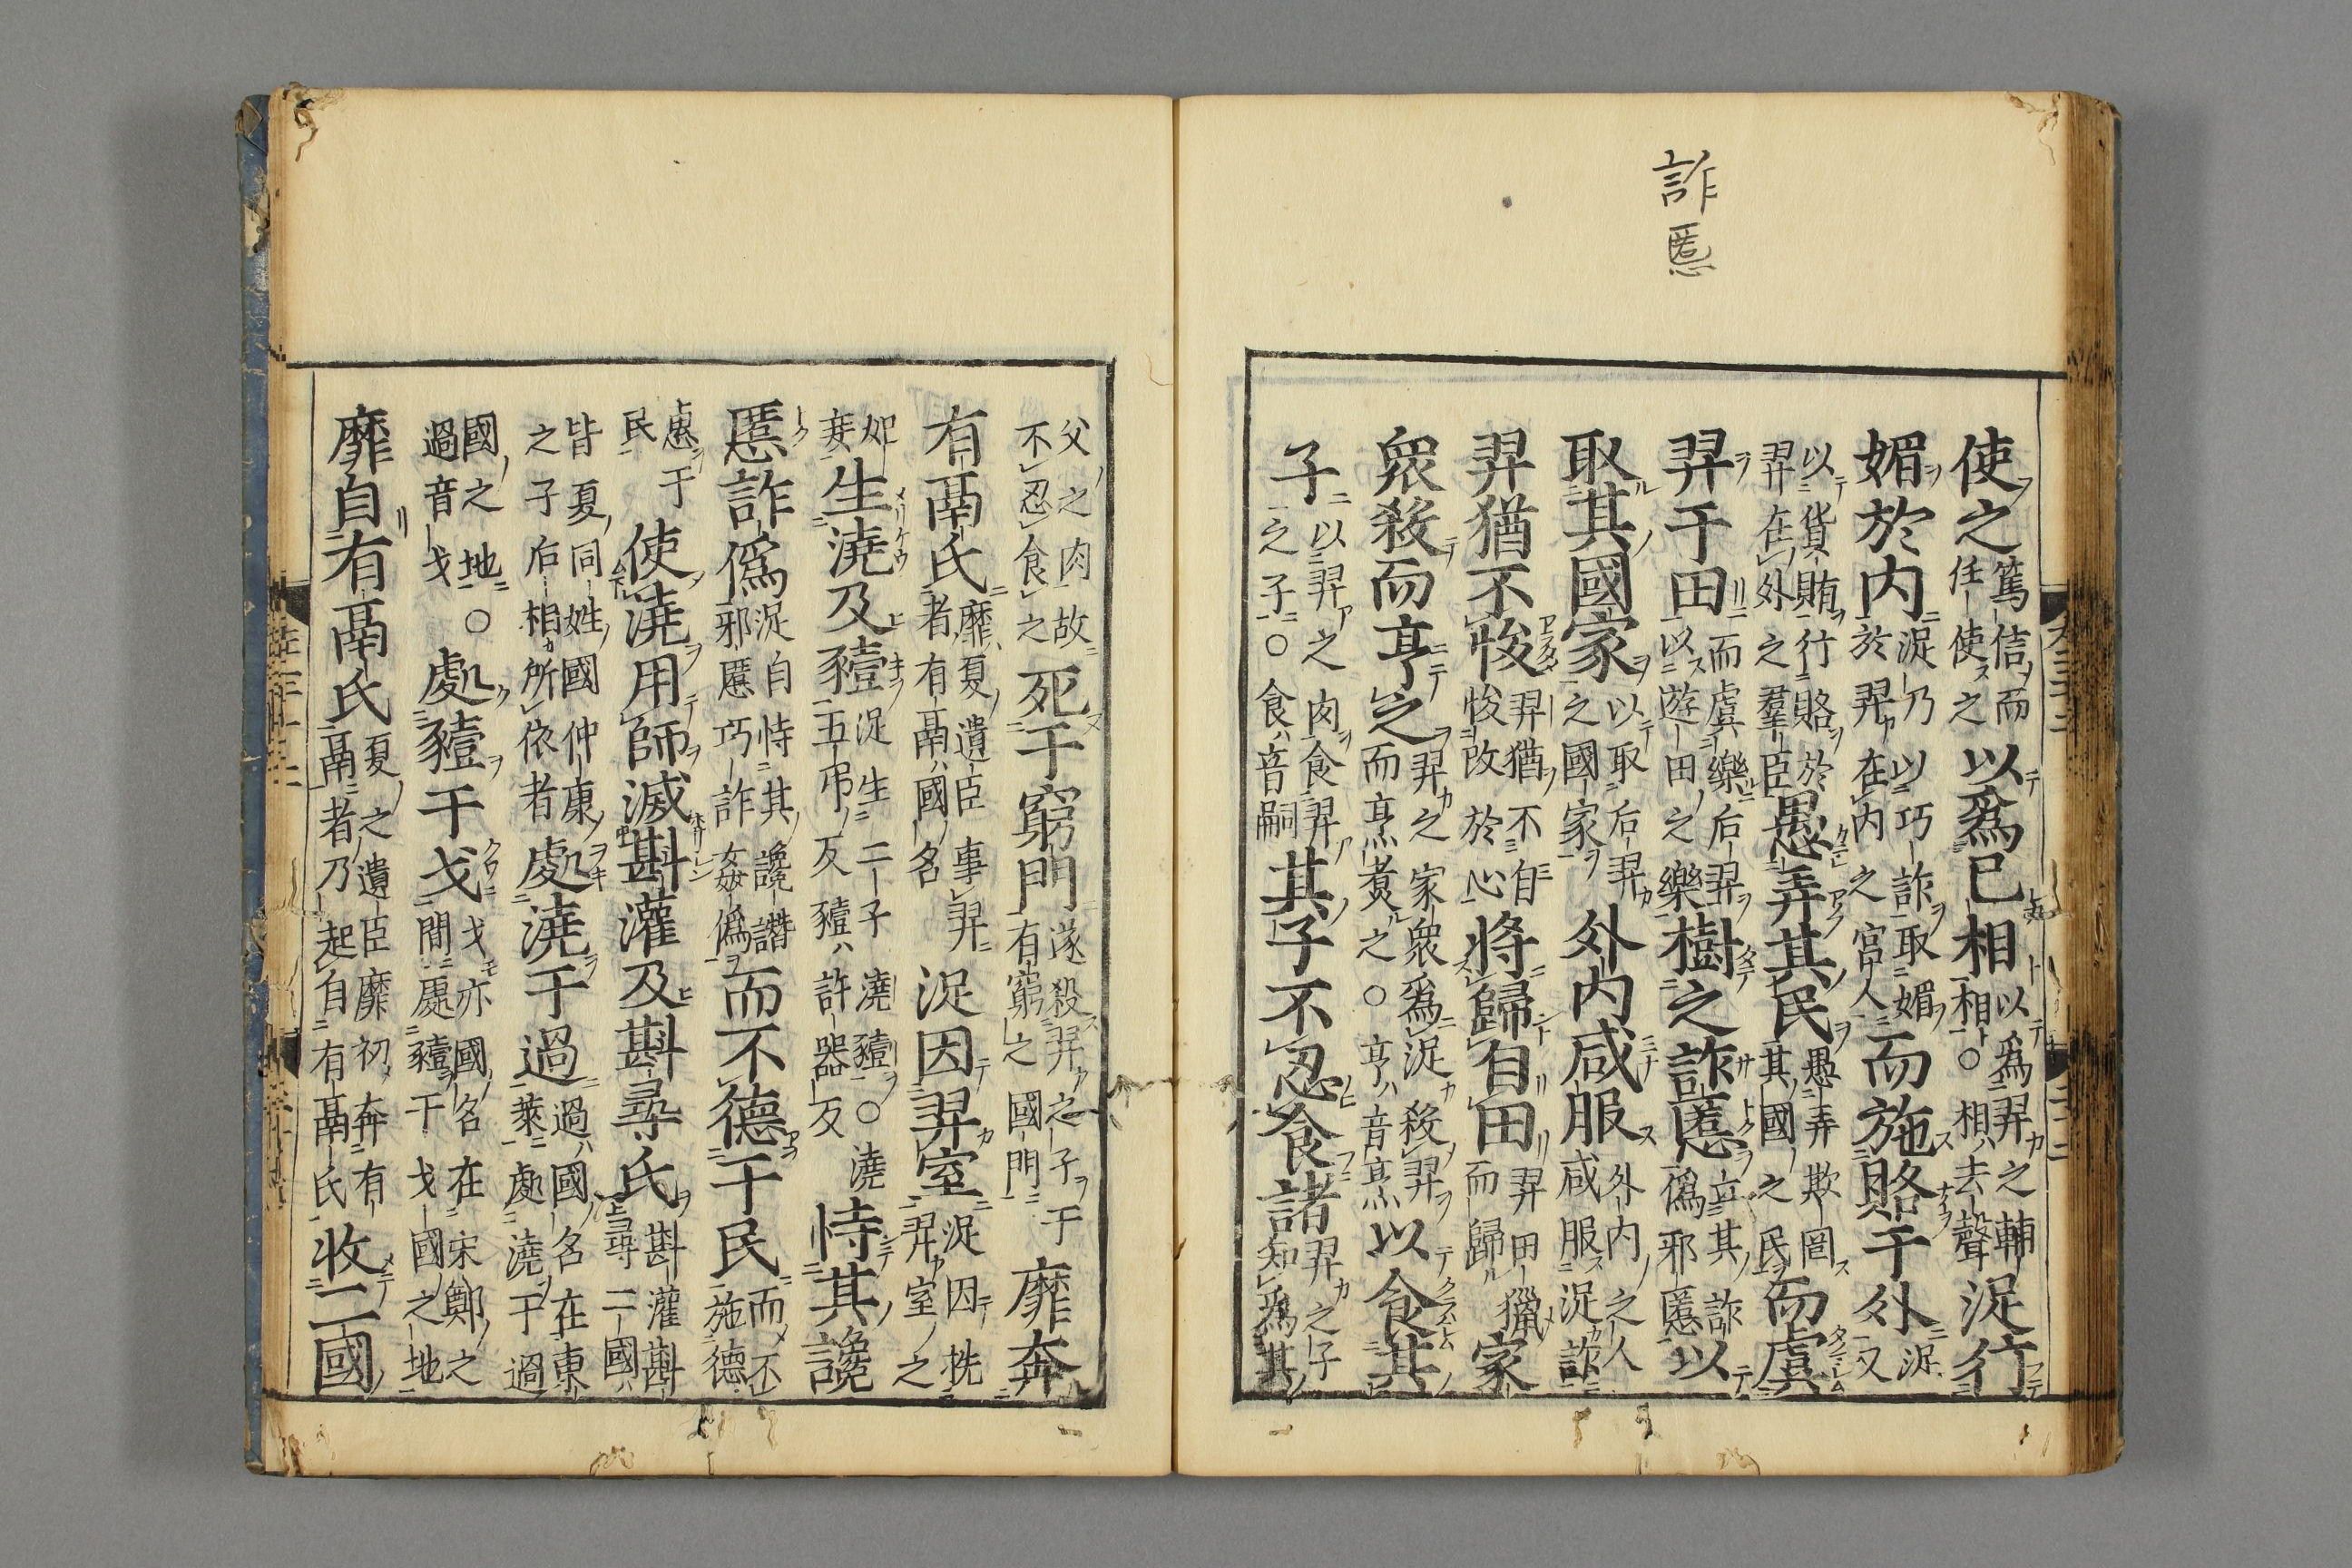 詐慝
使之篤信而任使之以爲己相以爲羿之輔相○相去聲浞行
媚於内浞乃以巧詐取媚於羿在内之宮人而施賂于外浞又
以貨賄行賂於羿在外之羣臣愚弄其民愚弄欺罔其國之民而虞
羿于田而虞樂后羿以遊田之樂樹之詐慝立其詐僞邪慝以
取其國家以取后羿之國家外内咸服外内之人咸服浞詐
羿猶不悛羿猶不自悛改於心將歸自田羿田獵而歸家
衆殺而亨之羿之家衆爲浞殺羿而烹煑之○亨音烹以食其
子以羿之肉食羿之子○食音嗣其子不忍食諸羿之子知爲其
父之肉故不忍食之死于窮門遂殺羿之子于有窮之國門靡奔
有鬲氏靡夏遺臣事羿者有鬲國名浞因羿室浞因姺羿室之
妃妾生澆及豷浞生二子澆豷○澆五弔反豷許器反恃其讒
慝詐僞浞自恃其讒譖邪慝巧詐姦僞而不德于民而不施德
惠于民使澆用師滅斟灌及斟尋氏斟灌斟尋二國
皆夏同姓國仲康之子后相所依者處澆于過過國名在東萊處澆于過
國之地○過音戈處豷于戈戈亦國名在宋鄭之間處豷于戈國之地
靡自有鬲氏夏之遺臣靡初奔有鬲者乃起自有鬲氏收二國